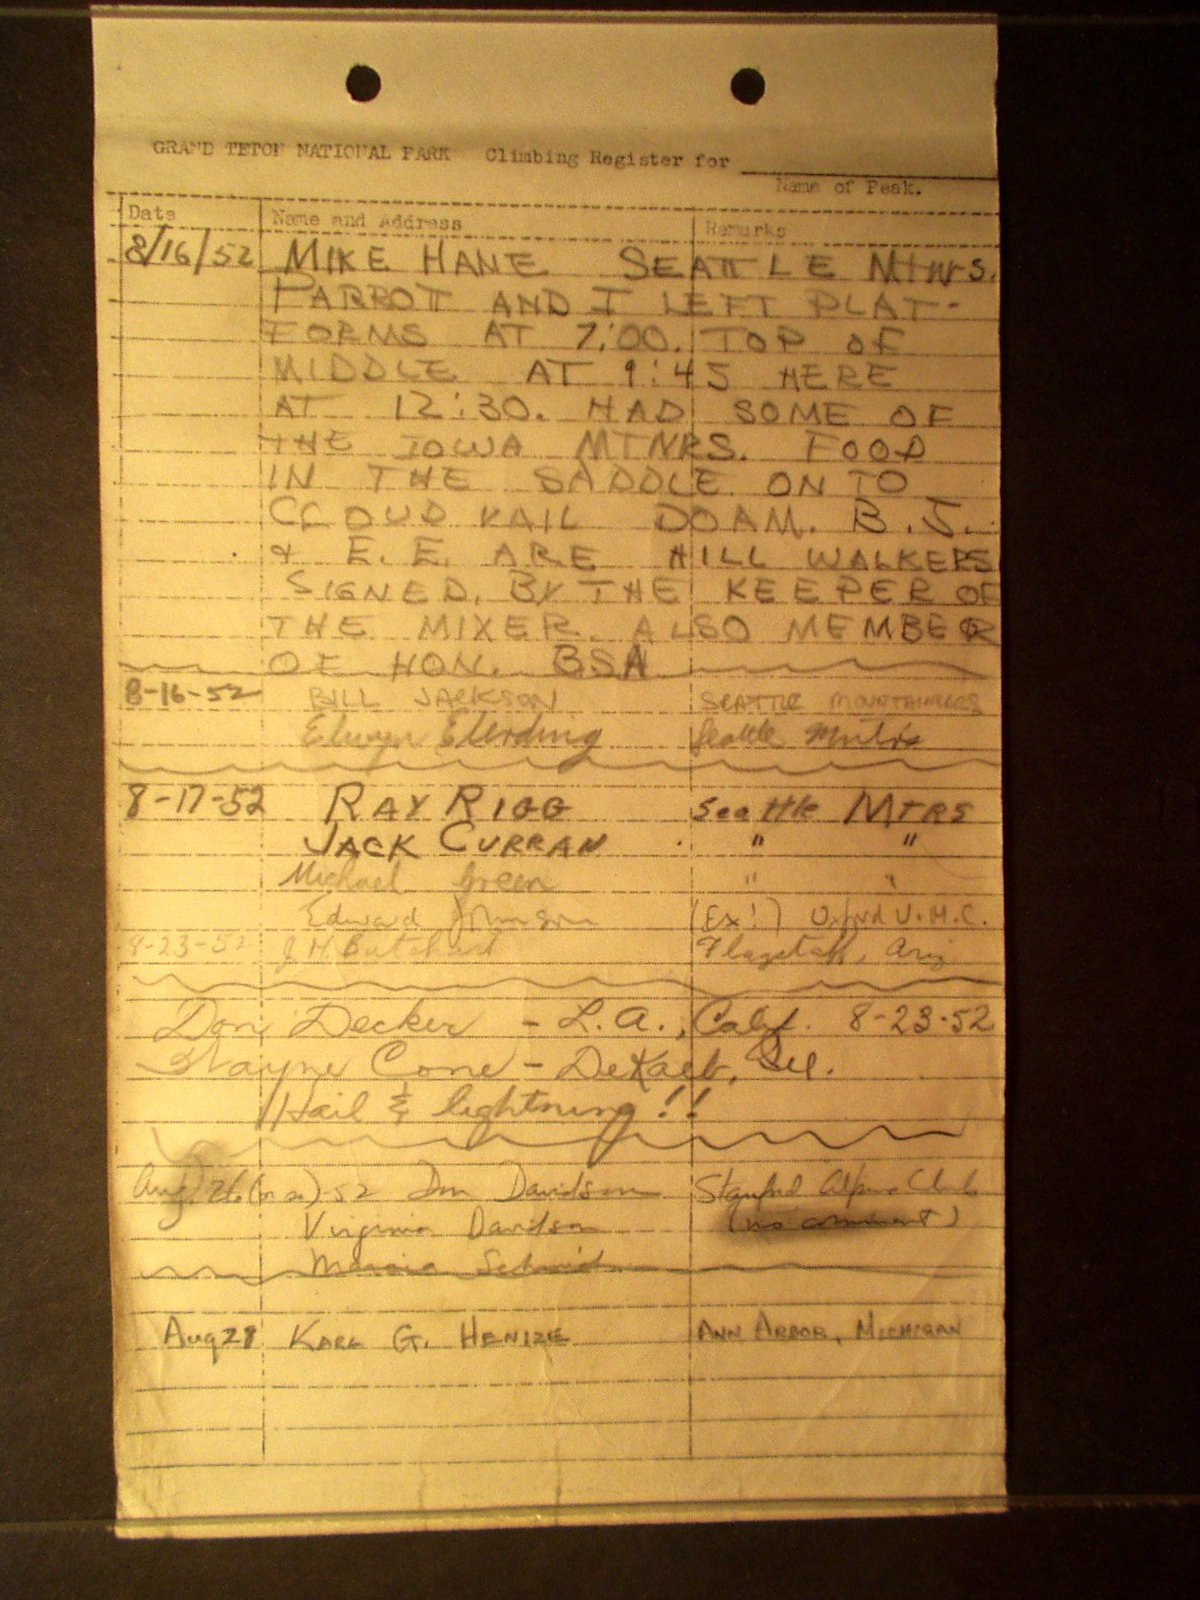 GRAND TETON NATIONAL PARK Climbing Register for
Name of Peak.
Date Name and Address Remarks
8/16/52 MIKE HANE SEATTLE MTNRS.
PARROTT AND I LEFT PLAT-
FORMS AT 7:00. TOP OF
MIDDLE AT 9:45 HERE
AT 12:30. HAD SOME OF
THE IOWA MTNRS. FOOD
IN THE SADDLE. ON TO
CLOUD VAIL DOAM. B.J.
& E.E. ARE HILL WALKERS
SIGNED. BY THE KEEPER OF
THE MIXER. ALSO MEMBER
OF HON. BSA
8-16-52 BILL JACKSON SEATTLE MOUNTAINEERS
Elwyn Elerding Seattle
8-17-52 RAY RIGG Seattle MTRS
JACK CURRAN " "
Michael Green " "
Edward Johnson (Ex!) Oxford U.M.C.
8-23-52 J.H. Butchart Flagstaff, Ariz
Don Decker - L.A., Calif. 8-23-52
Wayne Cone - DeKalb, Ill.
Hail & lightning!!
Aug. 26 52 Don Davidson Stanford Alpine Club
Virginia Davidson (no comment)
Marcia
Aug 28 KARL G. HENIZE ANN ARBOR, MICHIGAN